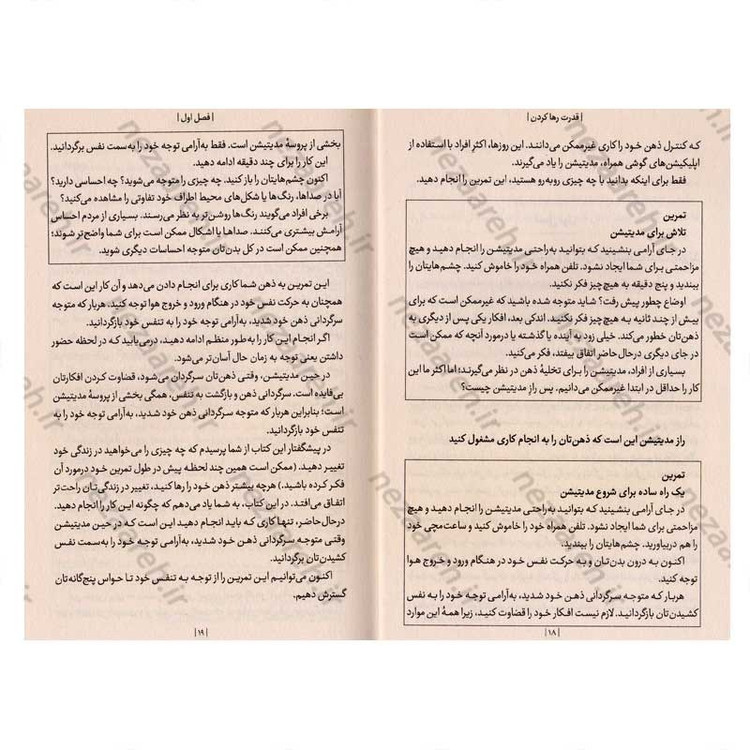 | قدرت رها کردن |
که کنترل ذهن خود را کاری غیرممکن می‌دانند. این روزها، اکثرِ افراد با استفاده از
اپلیکیشن‌های گوشی همراه، مدیتیشن را یاد می‌گیرند.
فقط برای اینکه بدانید با چه چیزی روبه‌رو هستید، این تمرین را انجام دهید.
تمرین
تلاش برای مدیتیشن
در جای آرامی بنشینید که بتوانید به‌راحتی مدیتیشن را انجام دهید و هیچ
مزاحمتی برای شما ایجاد نشود. تلفن همراه خود را خاموش کنید. چشم‌هایتان را
ببندید و پنج دقیقه به هیچ‌چیز فکر نکنید.
اوضاع چطور پیش رفت؟ شاید متوجه شده باشید که غیرممکن است که برای
بیش از چند ثانیه به هیچ‌چیز فکر نکنید. اندکی بعد، افکار یکی پس از دیگری به
ذهن‌تان خطور می‌کند. خیلی زود به آینده یا گذشته یا درمورد آنچه که ممکن است
در جای دیگری درحال‌حاضر اتفاق بیفتد، فکر می‌کنید.
بسیاری از افراد، مدیتیشن را برای تخلیهٔ ذهن در نظر می‌گیرند؛ اما اکثر ما این
کار را حداقل در ابتدا غیرممکن می‌دانیم. پس رازِ مدیتیشن چیست؟
راز مدیتیشن این است که ذهن‌تان را به انجام کاری مشغول کنید
تمرین
یک راه ساده برای شروع مدیتیشن
در جای آرامی بنشینید که بتوانید به‌راحتی مدیتیشن را انجام دهید و هیچ
مزاحمتی برای شما ایجاد نشود. تلفن همراه خود را خاموش کنید و ساعت‌مچی خود
را هم دربیاورید. چشم‌هایتان را ببندید.
اکنون به درون بدن‌تان و به حرکت نفس خود در هنگام ورود و خروج هوا
توجه کنید.
هربار که متوجه سرگردانی ذهن خود شدید، به‌آرامی توجه خود را به نفس
کشیدن‌تان بازگردانید. لازم نیست افکار خود را قضاوت کنید، زیرا همهٔ این موارد
| ۱۸ |
| فصل اول |
بخشی از پروسهٔ مدیتیشن است. فقط به‌آرامی توجه خود را به‌سمت نفس برگردانید.
این کار را برای چند دقیقه ادامه دهید.
اکنون چشم‌هایتان را باز کنید. چه چیزی را متوجه می‌شوید؟ چه احساسی دارید؟
آیا در صداها، رنگ‌ها یا شکل‌های محیط اطراف خود تفاوتی را مشاهده می‌کنید؟
برخی افراد می‌گویند رنگ‌ها روشن‌تر به نظر می‌رسند. بسیاری از مردم احساس
آرامش بیشتری می‌کنند. صداها یا اشکال ممکن است برای شما واضح‌تر شوند؛
همچنین ممکن است در کل بدن‌تان متوجه احساسات دیگری شوید.
این تمرین به ذهن شما کاری برای انجام دادن می‌دهد و آن کار این است که
همچنان به حرکت نفس خود در هنگام ورود و خروج هوا توجه کنید. هربار که متوجه
سرگردانی ذهن خود شدید، به‌آرامی توجه خود را به تنفس خود بازگردانید.
اگر انجام این کار را به‌طور منظم ادامه دهید، درمی‌یابید که در لحظه حضور
داشتن یعنی توجه به زمان حال آسان‌تر می‌شود.
در حین مدیتیشن، وقتی ذهن‌تان سرگردان می‌شود، قضاوت کردن افکارتان
بی‌فایده است. سرگردانی ذهن و بازگشت به تنفس، همگی بخشی از پروسهٔ مدیتیشن
است؛ بنابراین هربار که متوجه سرگردانی ذهن خود شدید، به‌آرامی توجه خود را به
تنفس خود بازگردانید.
در پیشگفتار این کتاب از شما پرسیدم که چه چیزی را می‌خواهید در زندگی خود
تغییر دهید. (ممکن است همین چند لحظه پیش در طول تمرین خود درمورد آن
فکر کرده باشید.) هرچه بیشتر ذهن خود را رها کنید، تغییر در زندگی‌تان راحت‌تر
اتفاق می‌افتد. در این کتاب، به شما یاد می‌دهم که چگونه این کار را انجام دهید.
درحال‌حاضر، تنها کاری که باید انجام دهید این است که در حین مدیتیشن
وقتی متوجه سرگردانی ذهن خود شدید، به‌آرامی توجه خود را به‌سمت نفس
کشیدن‌تان برگردانید.
اکنون می‌توانیم این تمرین را از توجه به تنفس خود تا حواس پنج‌گانه‌تان
گسترش دهیم.
| ۱۹ |
nezaareh.ir